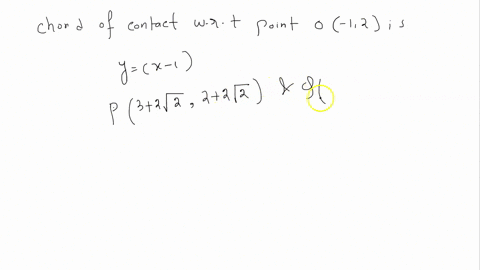 chord of contact w.r.t point O (-1,2) is
y=(x-1)
P (3+2√2, 2+2√2) & Q(